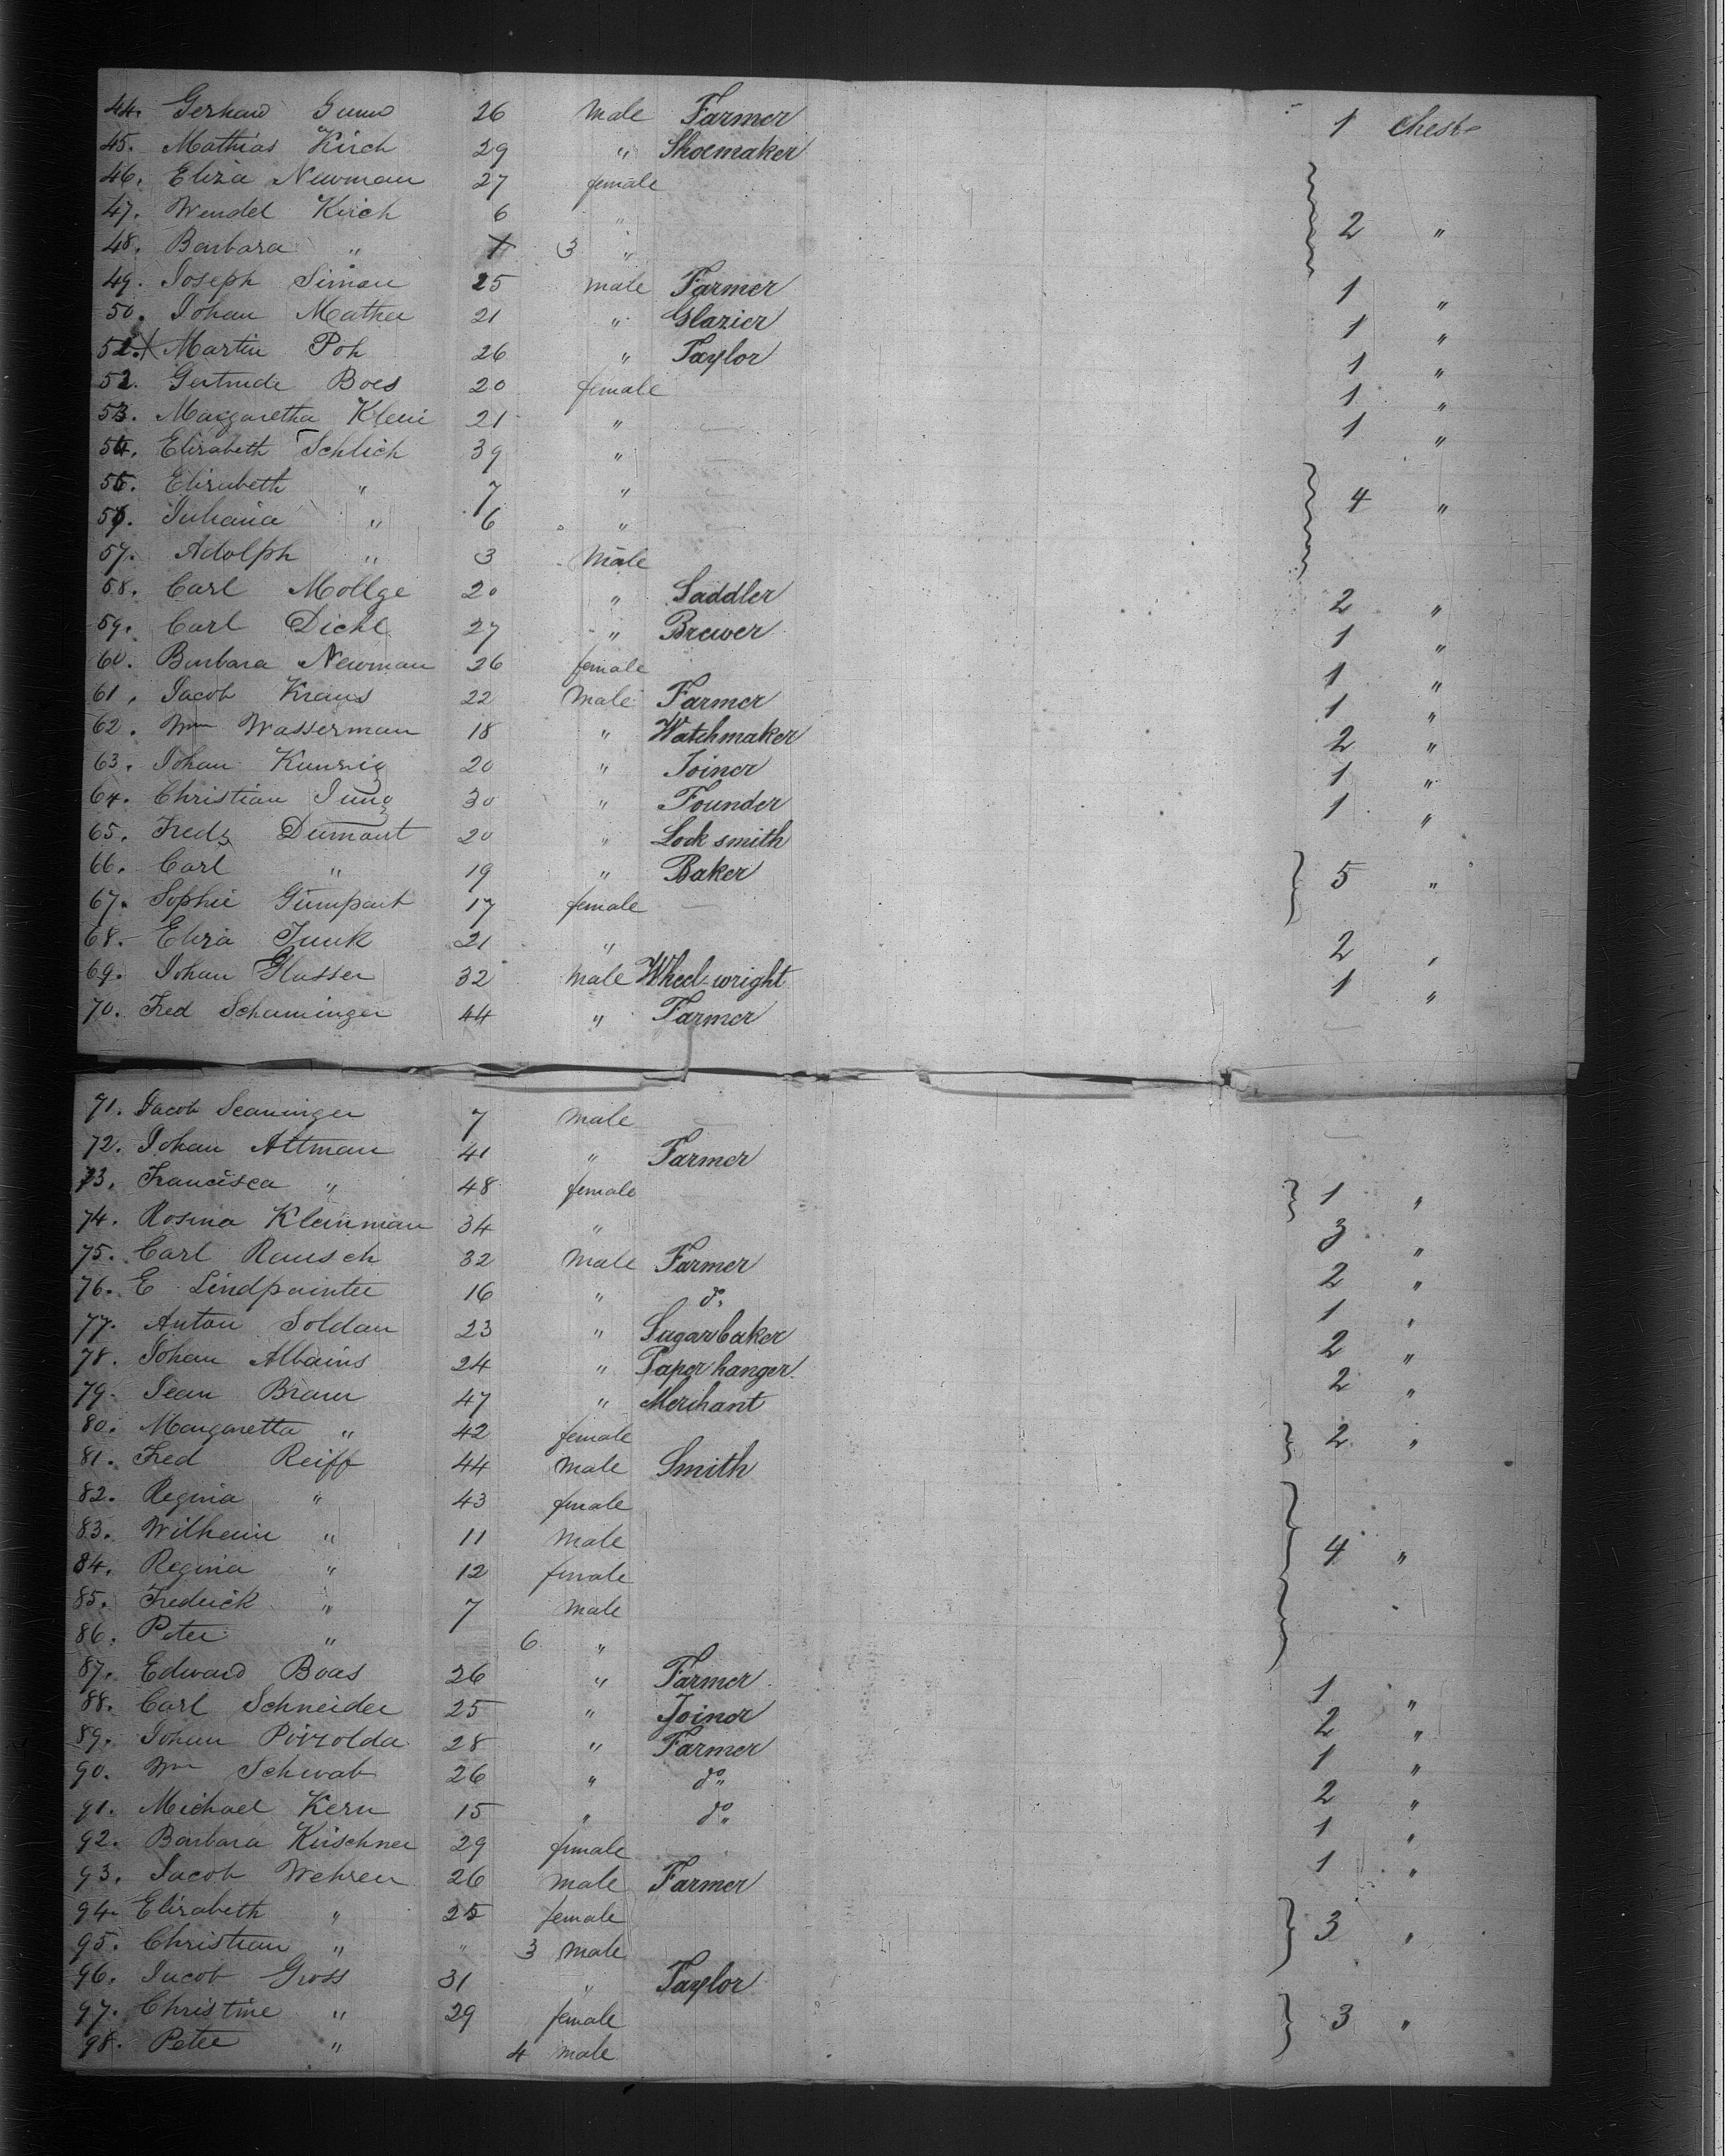 44. Gerhard Gumo 26 Male Farmer 1 Chest
45. Mathias Kirch 29 " Shoemaker
46. Eliza Newman 27 female
47. Wendel Kirch 6 " 2 "
48. Barbara " 3 "
49. Joseph Simon 25 male Farmer 1 "
50. Johan Mather 21 " Glazier 1 "
51. Martin Poh 26 " Taylor 1 "
52. Gertrude Boes 20 female 1 "
53. Margaretha Klein 21 " 1 "
54. Elizabeth Schlich 39 "
55. Elizabeth " 7 " 4 "
56. Juliana " 6 "
57. Adolph " 3 Male
58. Carl Mollge 20 " Saddler 2 "
59. Carl Diehl 27 " Brewer 1 "
60. Barbara Newman 26 female 1 "
61. Jacob Kraus 22 Male Farmer 1 "
62. Wm Wasserman 18 " Watchmaker 2 "
63. Johan Kunzig 20 " Joiner 1 "
64. Christian Jung 30 " Founder 1 "
65. Fredk Dumont 20 " Lock smith
66. Carl " 19 " Baker 5 "
67. Sophie Gumpart 17 female
68. Eliza Junk 21 " 2 "
69. Johan Glasser 32 Male Wheel-wright 1 "
70. Fred Schaninger 44 " Farmer
71. Jacob Scaninger 7 male
72. Johan Altman 41 " Farmer
73. Francisca " 48 female 1 "
74. Rosina Kleinman 34 " 3 "
75. Carl Rausch 32 Male Farmer 2 "
76. E Lindpainter 16 " do 1 "
77. Anton Soldan 23 " Sugarbaker 2 "
78. Johan Albains 24 " Paper hanger 2 "
79. Jean Braun 47 " Merchant
80. Margaretta " 42 female 2 "
81. Fred Reiff 44 Male Smith
82. Regina " 43 female
83. Wilhelm " 11 Male 4 "
84. Regina " 12 female
85. Frederick " 7 Male
86. Peter " 6 "
87. Edward Boas 26 " Farmer 1 "
88. Carl Schneider 25 " Joiner 2 "
89. Johan 28 " Farmer 1 "
90. Wm Schwab 26 " do 2 "
91. Michael Kern 15 " do 1 "
92. Barbara Kirschner 29 female 1 "
93. Jacob Wehren 26 Male Farmer
94. Elizabeth " 25 female 3 "
95. Christian " " 3 male
96. Jacob Gross 31 " Taylor
97. Christine " 29 female 3 "
98. Peter " 4 male